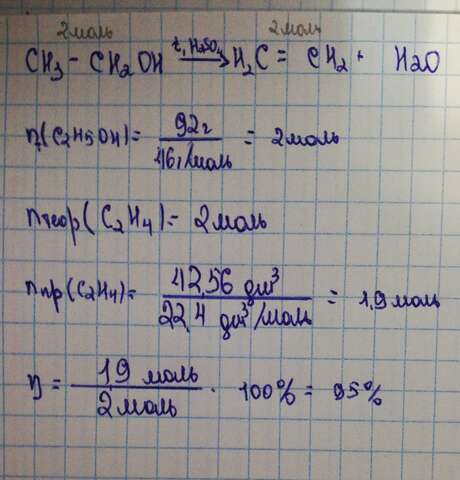 2моль 2моль
CH3 - CH2OH t, H2SO4 → H2C = CH2 + H2O
n(C2H5OH) = 92г / 46г/моль = 2моль
nтеор(C2H4) = 2моль
nпр(C2H4) = 42,56 дм³ / 22,4 дм³/моль = 1,9 моль
η = 1,9 моль / 2моль · 100% = 95%